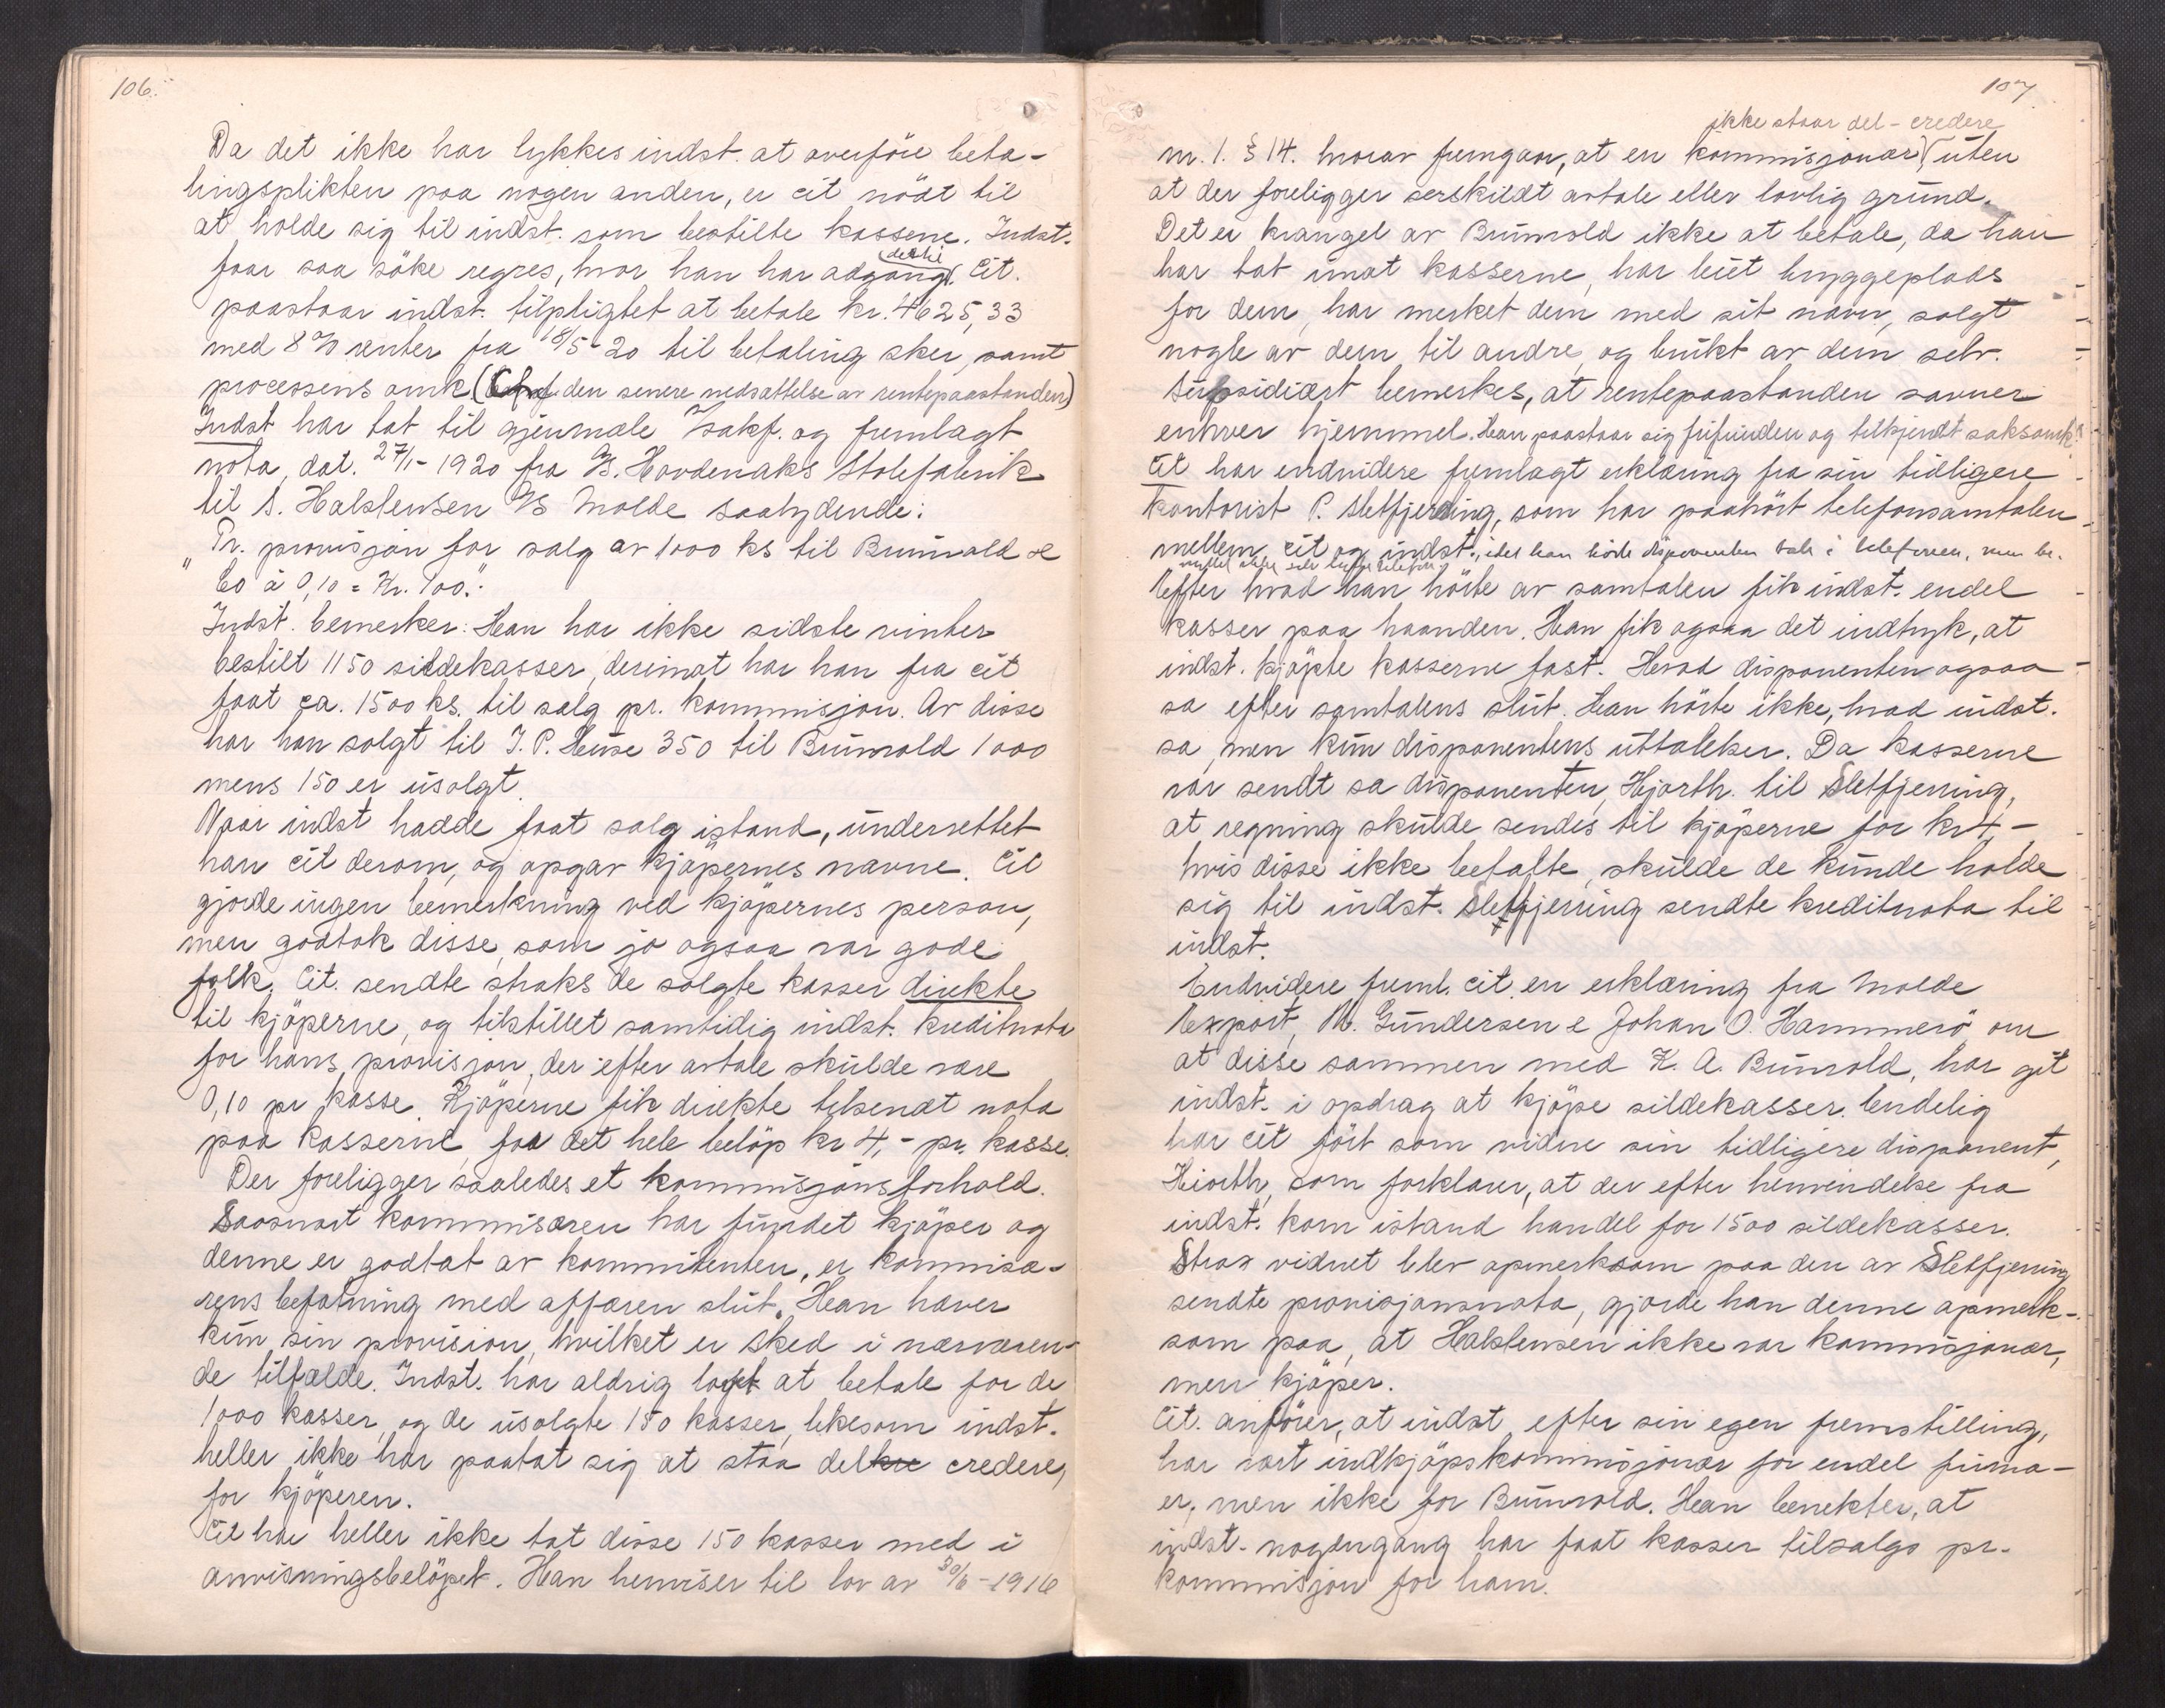 106.
Da det ikke har lykkes indst. at overføre beta-
lingsplikten paa nogen anden, er cit nödt til
at holde sig til indst. som bestilte kassene. Indst.
faar saa söke regres, hvor han har adgang dertil. Cit.
paastaar indst. tilpligtet at betale kr. 4625,33
med 8 % renter fra 18/5-20 til betaling sker, samt
processens omk. ( den senere nedsættelse av rentepaastanden)
Indst har tat til gjenmæle i sakf. og fremlagt
nota, dat. 27/1-1920 fra A/S. Hovdenaks Stolefabrik
til S. Halstensen A/S Molde saalydende:
"Pr. provisjon for salg av 1000 ks til Brunvold &
Co à 0,10 = Kr. 100."
Indst. bemerker: Han har ikke sidste vinter
bestilt 1150 sildekasser, derimot har han fra cit
faat ca. 1500 ks. til salg pr. kommisjon. Av disse
har han solgt til J. P. Huse 350 til Brunvold 1000
mens 150 er usolgt.
Naar indst hadde faat salg istand, underrettet
han cit derom, og opgav kjöpernes navne. Cit
gjorde ingen bemerkning ved kjöpernes person,
men godtok disse, som jo ogsaa var gode
folk. Cit. sendte straks de solgte kasser direkte
til kjöperne, og tilstillet samtidig indst. kreditnota
for hans provisjon, der efter avtale skulde være
0,10 pr kasse. Kjöperne fik direkte tilsendt nota
paa kasserne, for det hele belöp kr 4,- pr. kasse.
Der foreligger saaledes et kommisjonsforhold.
Saasnart kommisæren har fundet kjöper og
denne er godtat av kommitenten, er kommisæ-
rens befatning med affæren slut. Han hæver
kun sin provision, hvilket er sked i nærværen-
de tilfælde. Indst. har aldrig lovet at betale for de
1000 kasser, og de usolgte 150 kasser, likesom indst.
heller ikke har paatat sig at staa del credere,
for kjöperen.
Cit har heller ikke tat disse 150 kasser med i
anvisningsbelöpet. Han henviser til lov av 30/6-1916
107
ikke staar del-credere
nr. 1. § 14. hvorav fremgaar, at en kommisjonær uten
at der foreligger særskildt avtale eller lovlig grund.
Det er krangel av Brunvold ikke at betale, da han
har tat imot kasserne, har leiet bryggeplads
for dem, har merket dem med sit navn, solgt
nogle av dem til andre, og brukt av dem selv.
Subsidiært bemerkes, at rentepaastanden savner
enhver hjemmel. Han paastaar sig frifunden og tilkjendt saksomk.
Cit har endvidere fremlagt erklæring fra sin tidligere
kontorist P. Sletfjerding, som har paahört telefonsamtalen
mellem cit og indst., idet han hörte disponenten tale i telefonen, men be-
nyttet ikke selv
Efter hvad han hörte av samtalen fik indst. endel
kasser paa haanden. Han fik ogsaa det indtryk, at
indst. kjöpte kasserne fast. Hvad disponenten ogsaa
sa efter samtalens slut. Han hörte ikke, hvad indst.
sa, men kun disponentens uttalelser. Da kasserne
var sendt sa disponenten, Hjorth til Sletfjerring,
at regning skulde sendes til kjöperne for kr 4,-
hvis disse ikke betalte, skulde de kunde holde
sig til indst. Sletfjerring sendte kreditnota til
indst.
Endvidere freml. cit en erklæring fra Molde
Export, M. Gundersen & Johan O. Hammerö om
at disse sammen med K. A. Brunvold, har git
indst. i opdrag at kjöpe sildekasser. Endelig
har cit fört som vidne sin tidligere disponent,
Kiorth, som forklarer, at der efter henvendelse fra
indst. kom istand handel for 1500 sildekasser.
Strax vidnet blev opmerksom paa den av Sletfjerring
sendte provisjonsnota, gjorde han denne opmerk-
som paa, at Halstensen ikke var kommisjonær,
men kjöper.
Cit. anförer, at indst. efter sin egen fremstilling,
har vært indkjöpskommisjonær for endel firma-
er, men ikke for Brunvold. Han benekter, at
indst. nogengang har faat kasser tilsalgs pr.
kommisjon for ham.